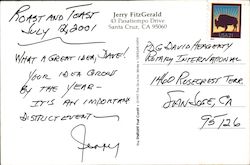 ROAST AND TOAST
JULY 12, 2001
WHAT A GREAT IDEA, DAVE!
YOUR IDEA GROWS
BY THE YEAR —
IT'S AN IMPORTANT
DISTRICT EVENT.
Jerry
Jerry FitzGerald
43 Pasatiempo Drive
Santa Cruz, CA 95060
PDG DAVID HEAGERTY
ROTARY INTERNATIONAL
1460 ROSECREST TERR.
SAN JOSE, CA
95126